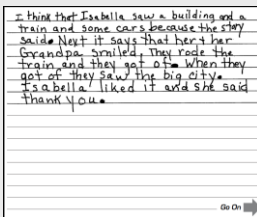 I think that Isabella saw a building and a
train and some cars because the story
said. Next it says that her + her
Grandpa smile'd. They rode the
train and they got of. When they
got of they saw the big city.
Isabella liked it and she said
thank you.
Go On